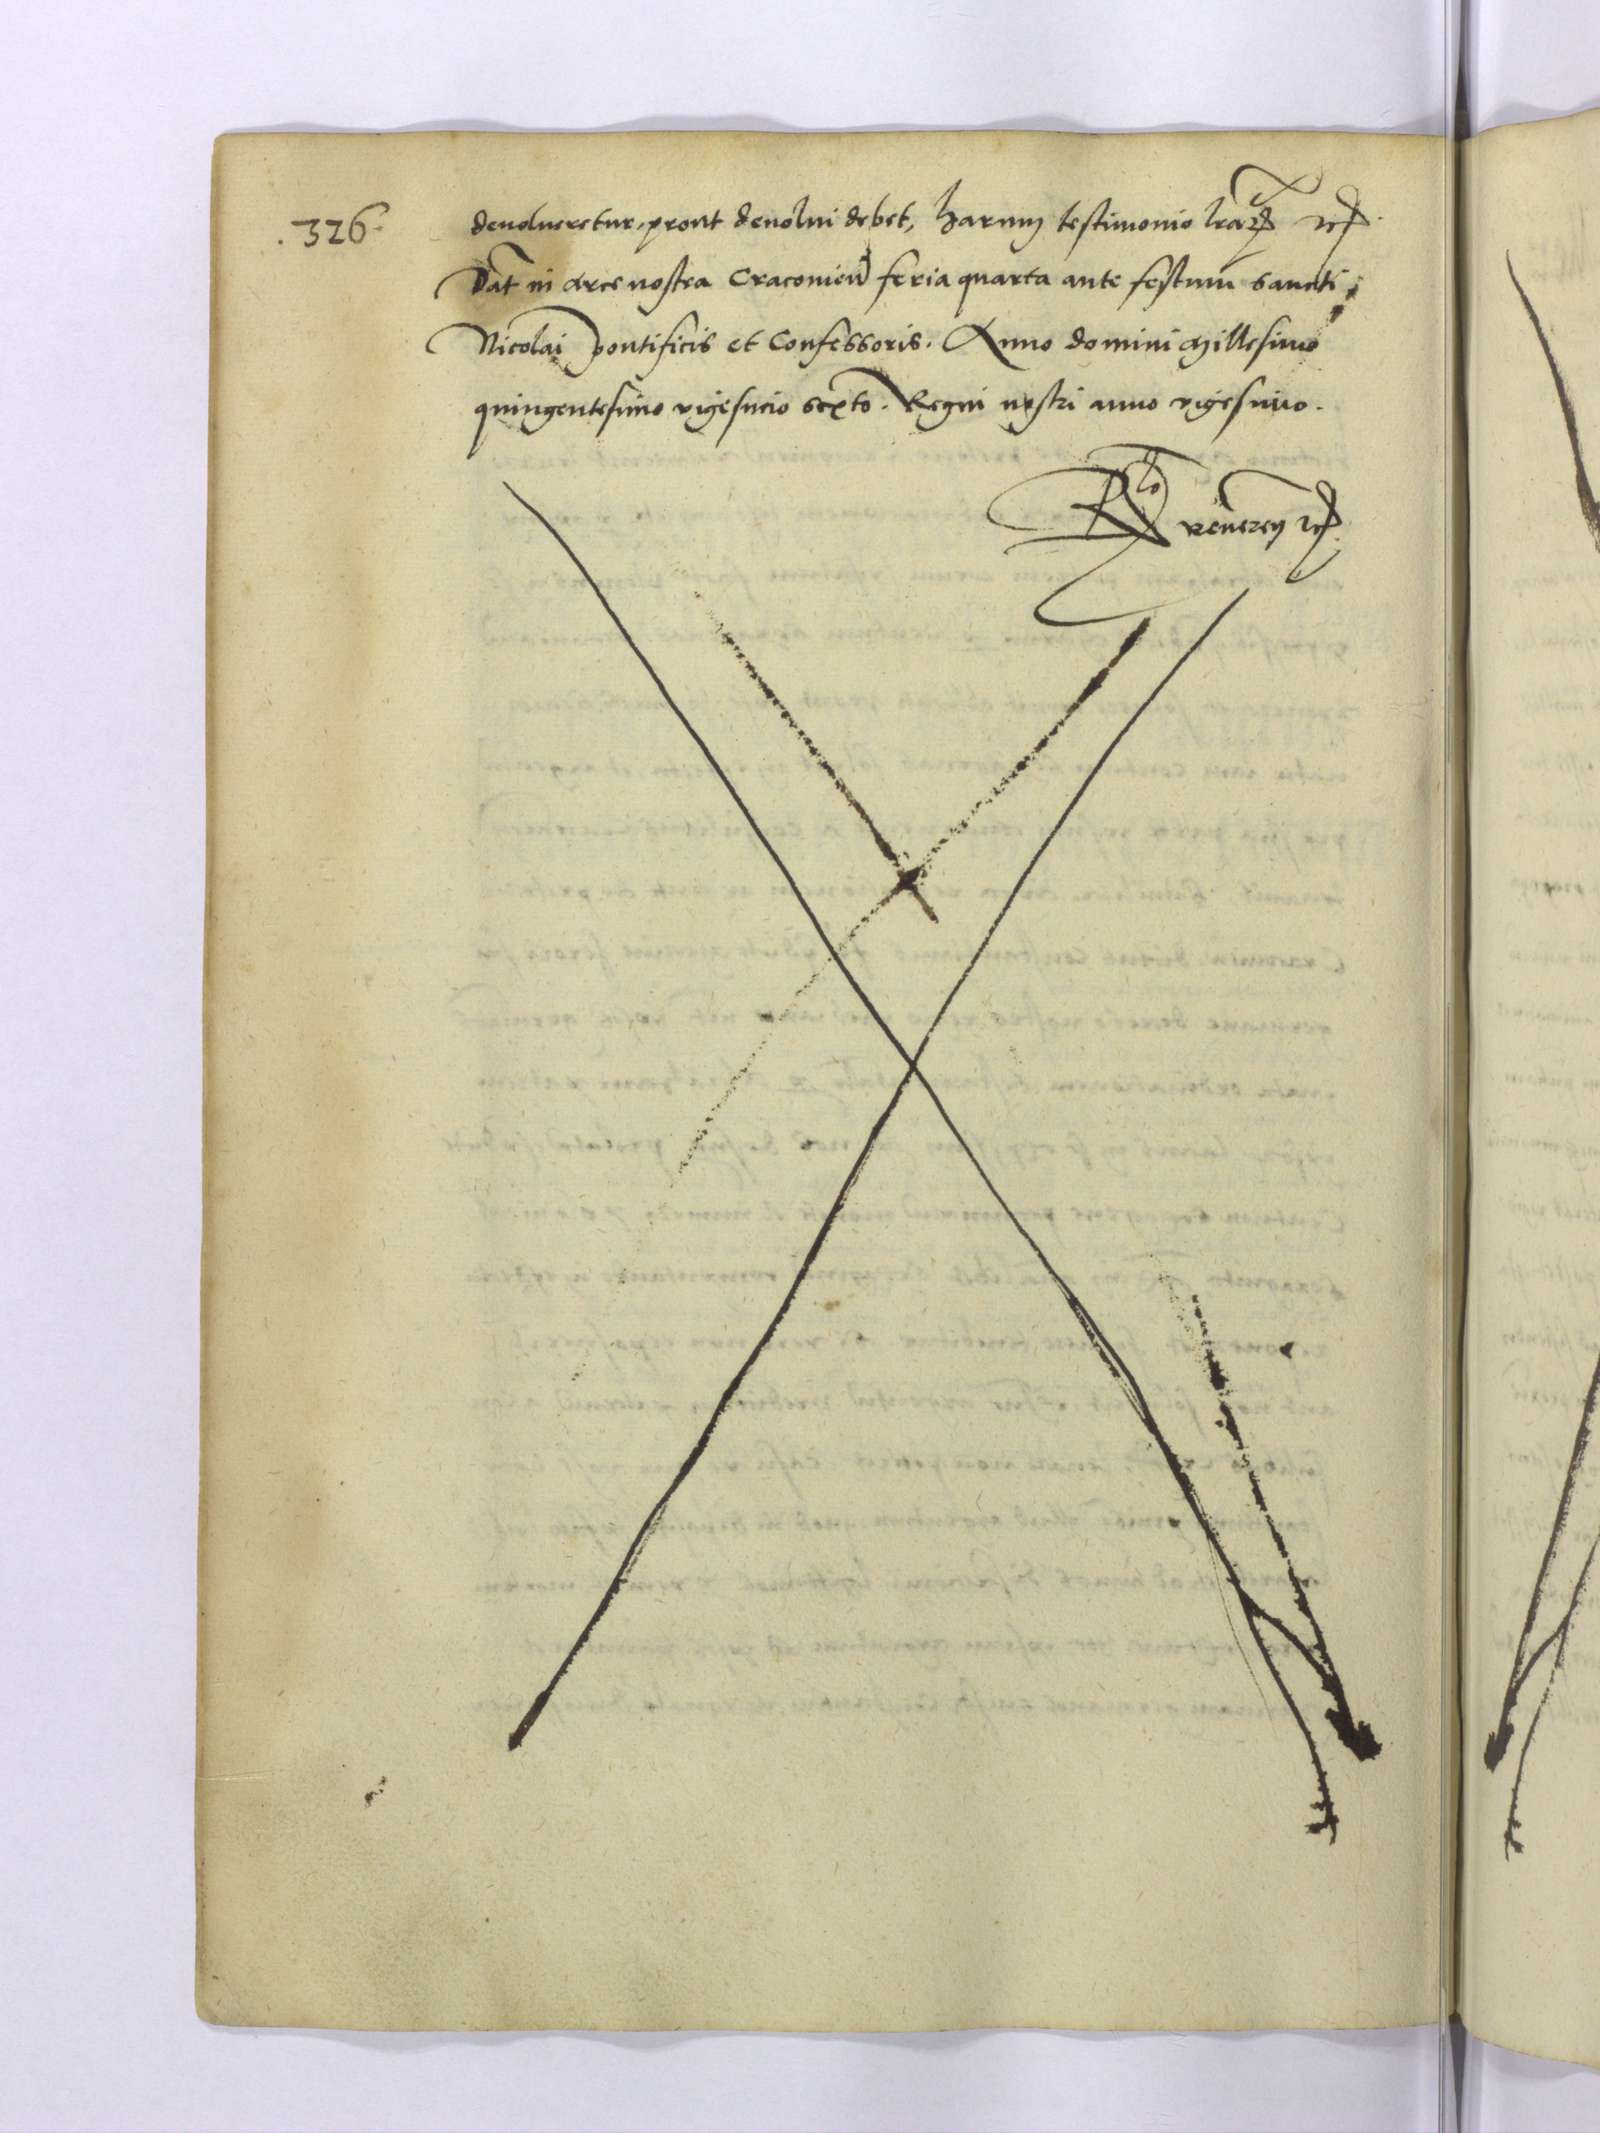 .326.
devolveretur, prout devolvi debet, harum testimonio lrarꝝ etc.
Dat in arce nostra Cracovien feria quarta ante festum sancti
Nicolai pontificis et Confessoris. Anno domini Millesimo
quingentesimo vigesimo sexto. Regni nostri anno vigesimo.
Rlo Reveren etc.